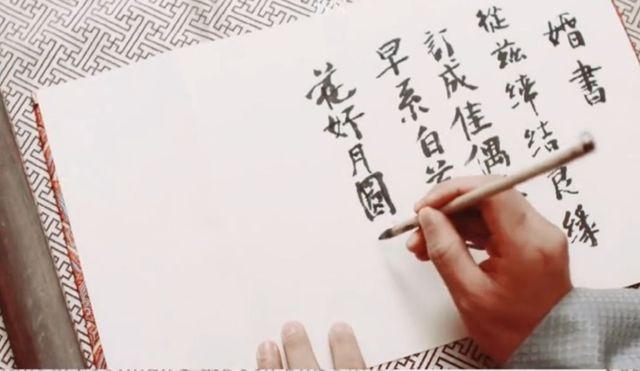 婚書
從茲締結良緣
訂成佳偶
早系白
花好月圓